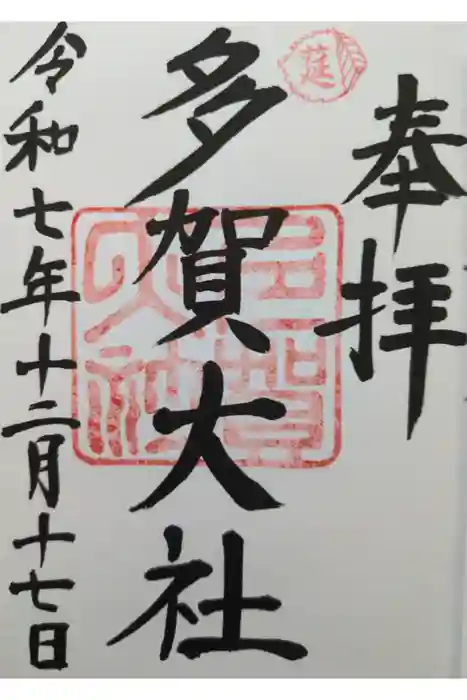 奉拝
莚
多賀大社
多賀大社
令和七年十二月十七日